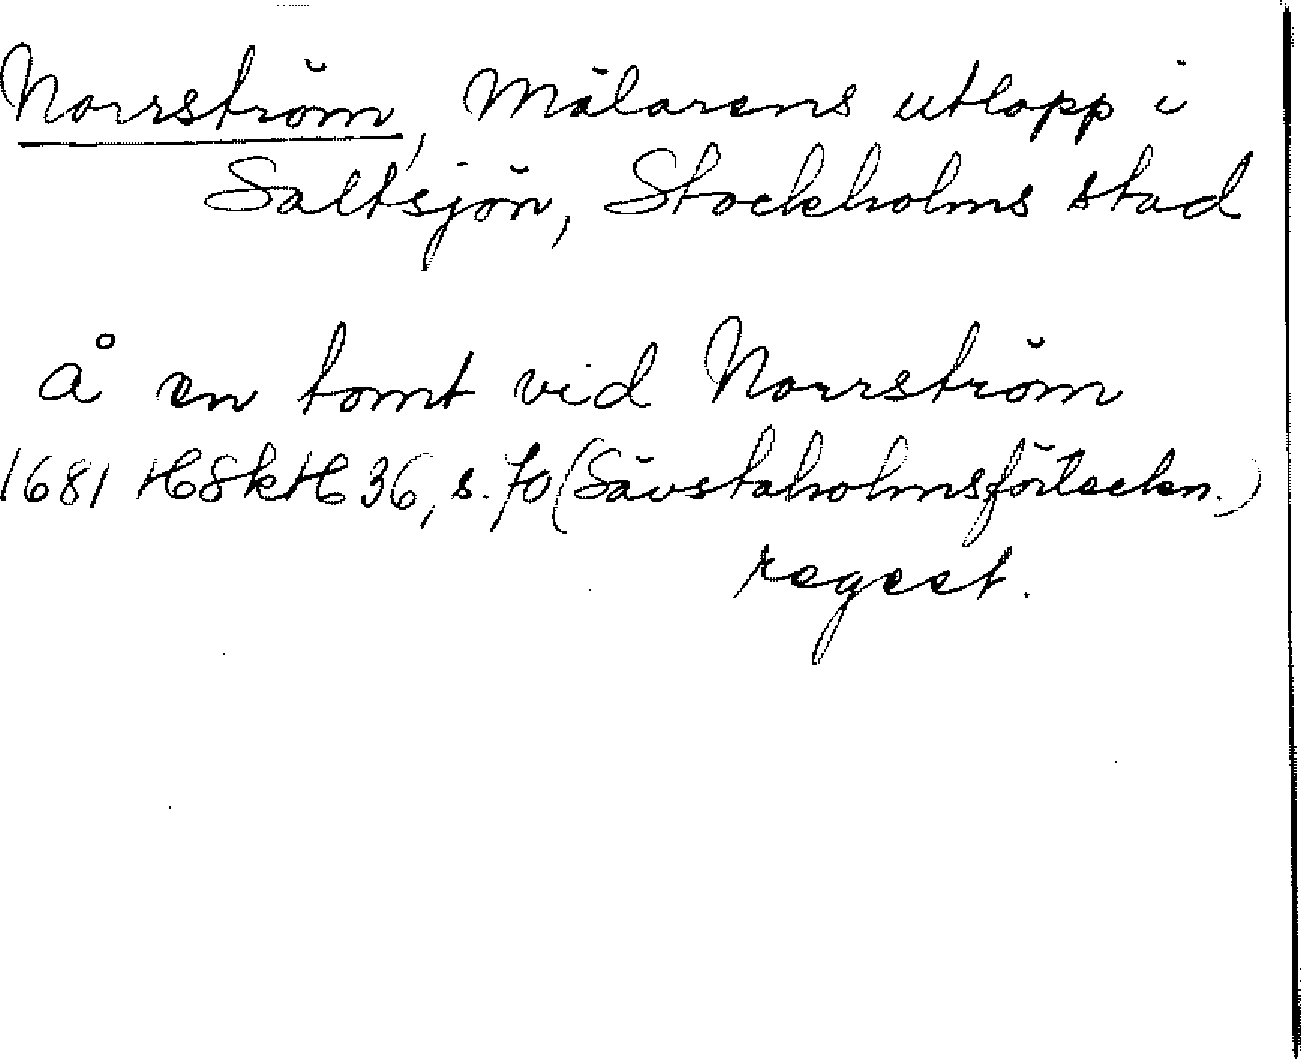 Norrström, Mälarens utlopp i
Saltsjön, Stockholms stad
å en tomt vid Norrström
1681 HSkH 36, s. 70 (Sävstaholmsförteckn.)
regest.